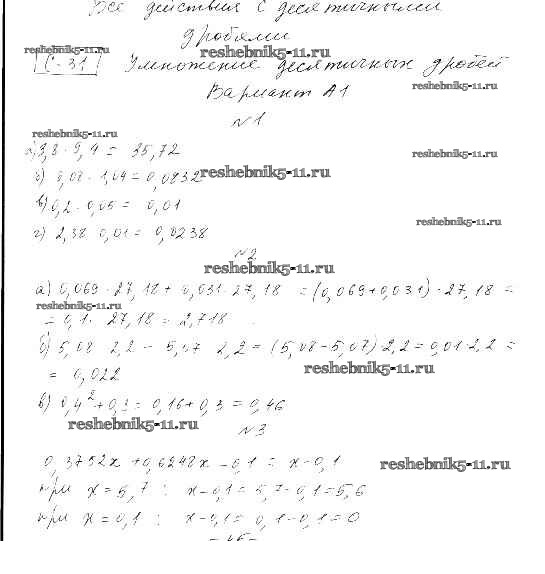 Все действия с десятичными
дробями
reshebnik5-11.ru
reshebnik5-11.ru
С-31 Умножение десятичных дробей
reshebnik5-11.ru
Вариант А1
№1
reshebnik5-11.ru
а) 3,8 · 9,4 = 35,72
reshebnik5-11.ru
б) 0,08 · 1,04 = 0,0832
reshebnik5-11.ru
в) 0,2 · 0,05 = 0,01
reshebnik5-11.ru
г) 2,38 · 0,01 = 0,0238
№2
reshebnik5-11.ru
а) 0,069 · 27,18 + 0,031 · 27,18 = (0,069 + 0,031) · 27,18 =
reshebnik5-11.ru
= 0,1 · 27,18 = 2,718
б) 5,08 · 2,2 - 5,07 · 2,2 = (5,08 - 5,07) · 2,2 = 0,01 · 2,2 =
= 0,022
reshebnik5-11.ru
в) 0,4² + 0,3 = 0,16 + 0,3 = 0,46
reshebnik5-11.ru
№3
0,3752x + 0,6248x - 0,1 = x - 0,1
reshebnik5-11.ru
при x = 5,7 : x - 0,1 = 5,7 - 0,1 = 5,6
при x = 0,1 : x - 0,1 = 0,1 - 0,1 = 0